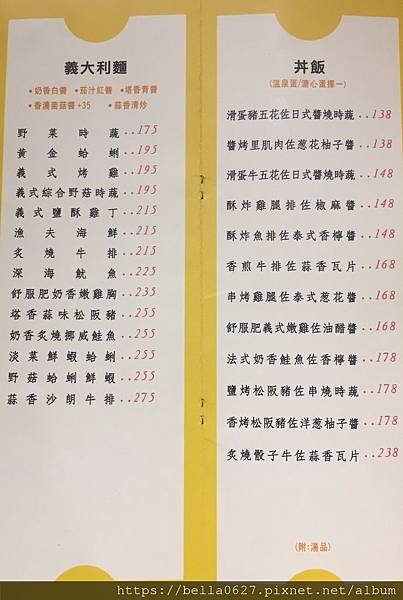 義大利麵
•奶香白醬 •茄汁紅醬 •塔香青醬
•香濃菌菇醬+35 •蒜香清炒
野菜時蔬..175
黃金蛤蜊..195
義式烤雞..195
義式綜合野菇時蔬..195
義式鹽酥雞丁..215
漁夫海鮮..215
炙燒牛排..215
深海魷魚..225
舒服肥奶香嫩雞胸..235
塔香蒜味松阪豬..255
奶香炙燒挪威鮭魚..255
淡菜鮮蝦蛤蜊..255
野菇蛤蜊鮮蝦..255
蒜香沙朗牛排..275
丼飯
(溫泉蛋/溏心蛋擇一)
滑蛋豬五花佐日式醬燒時蔬..138
醬烤里肌肉佐蔥花柚子醬..138
滑蛋牛五花佐日式醬燒時蔬..148
酥炸雞腿排佐椒麻醬..148
酥炸魚排佐泰式香檸醬..148
香煎牛排佐蒜香瓦片..168
串烤雞腿佐泰式蔥花醬..168
舒服肥義式嫩雞佐油醋醬..168
法式奶香鮭魚佐香檸醬..178
鹽烤松阪豬佐串燒時蔬..178
香烤松阪豬佐洋蔥柚子醬..178
炙燒骰子牛佐蒜香瓦片..238
(附:湯品)
https://bella0627.pixnet.net/album